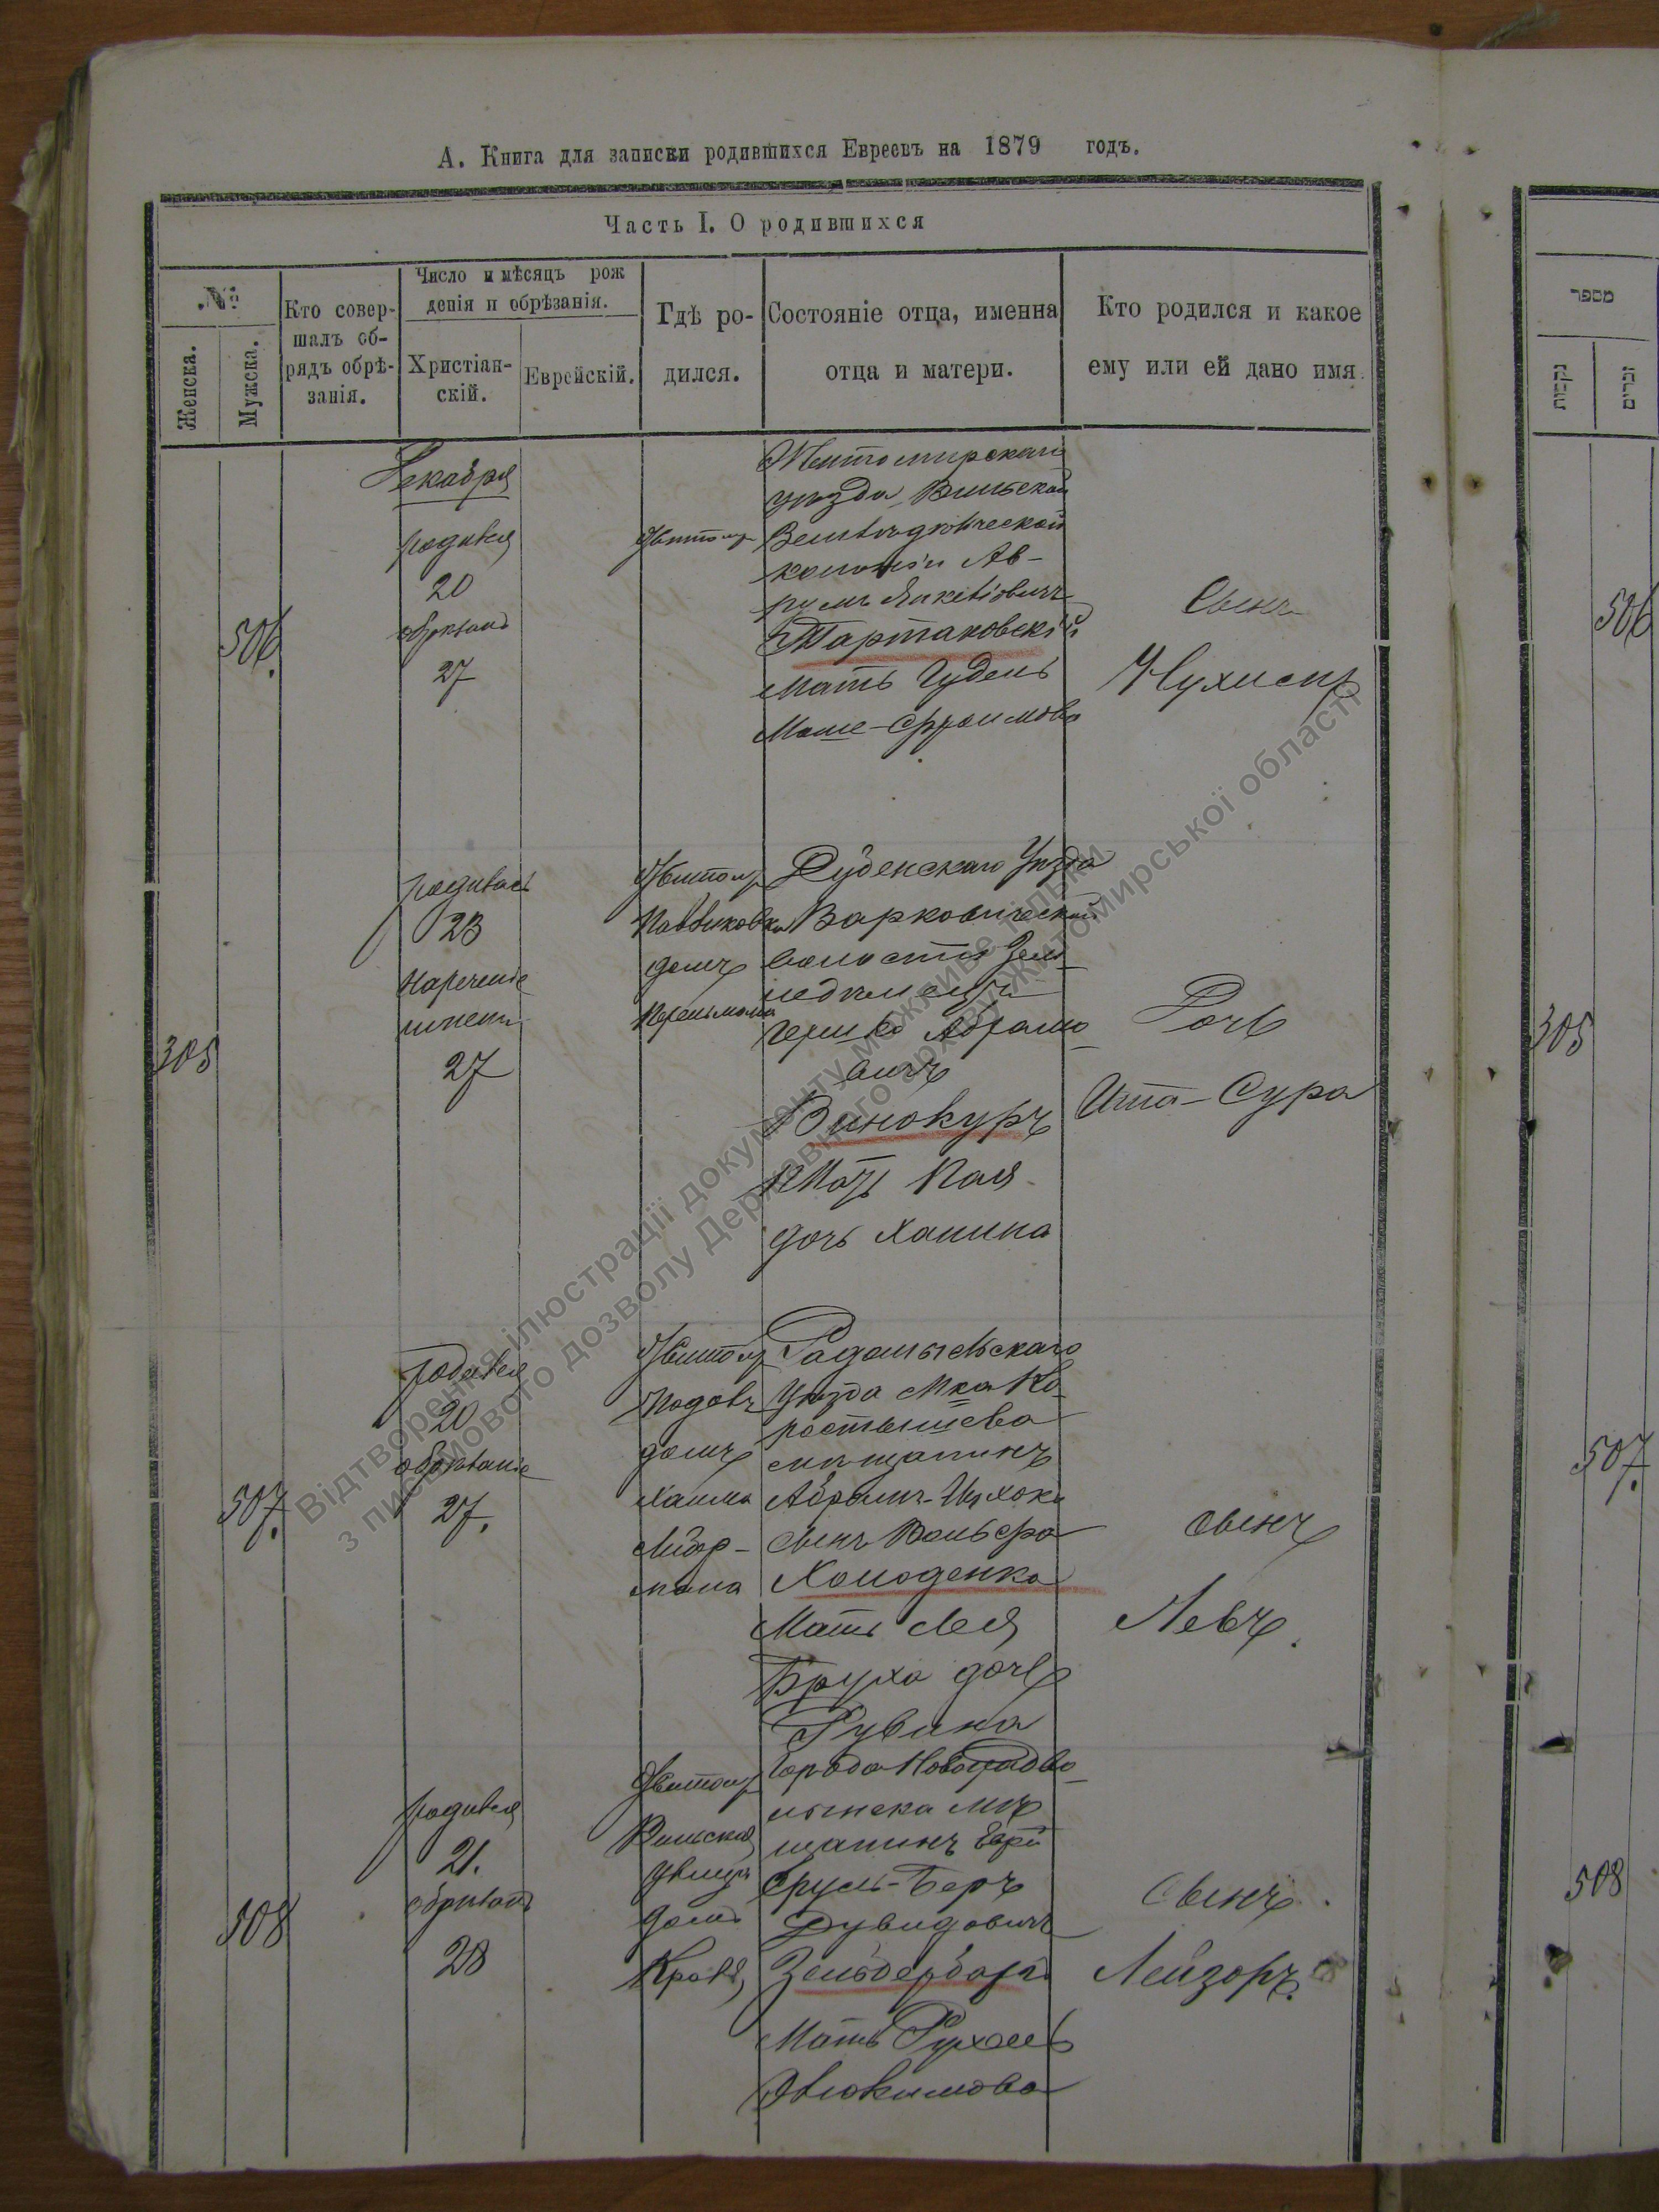 А. Книга для записки родившихся Евреевъ на 1879 годъ.
Часть I. О родившихся
№
Женска.
Мужска.
Кто совер-
шалъ об-
рядъ обрѣ-
занія.
Число и мѣсяцъ рож
денія и обрѣзанія.
Христіан-
скій.
Еврейскій.
Гдѣ ро-
дился.
Состояніе отца, именна
отца и матери.
Кто родился и какое
ему или ей дано имя.
מספר
נקבות
זכרים
506.
Декабря
родився
20
обрѣзанъ
27
Житомир
Житомирскаго
уѣзда Вильской
колоніи Ав-
румъ
Тартаковскій
Мать Гудель
Мош-Фроимова
Сынъ
Нухимъ
506
305
родилась
23
нареченіе
имени
27
Житомир
Павликовка
домъ
Перельмана
Дубенскаго Уѣзда
Варковической
волости Земле
Гершко Абрамо-
вичъ
Винокуръ
Мать Пая
дочь Ханина
Дочь
Ита-Сура
305
507.
родився
20
обрѣзаніе
27.
Житомир
домъ
Хаима
Либер-
мана
Радомысльскаго
Уѣзда Мка Ко-
ростышева
мѣщанинъ
Абрамъ-Ицхокъ
сынъ Вольфа
Холоденко
Мать Лея
Бруха дочь
Рувина
сынъ
Левъ.
507.
508
родився
21.
обрѣзанъ
28
Житомир
Вильская
улица
домъ
Города Новоградво-
лынска мѣ
щанинъ
Сруль-Беръ
Дувидовичъ
Зельберборг
Мать Рухель
Сынъ.
Лейзоръ.
508
Відтворення ілюстрації документу можливе тільки
з письмового дозволу Державного архіву Житомирської області